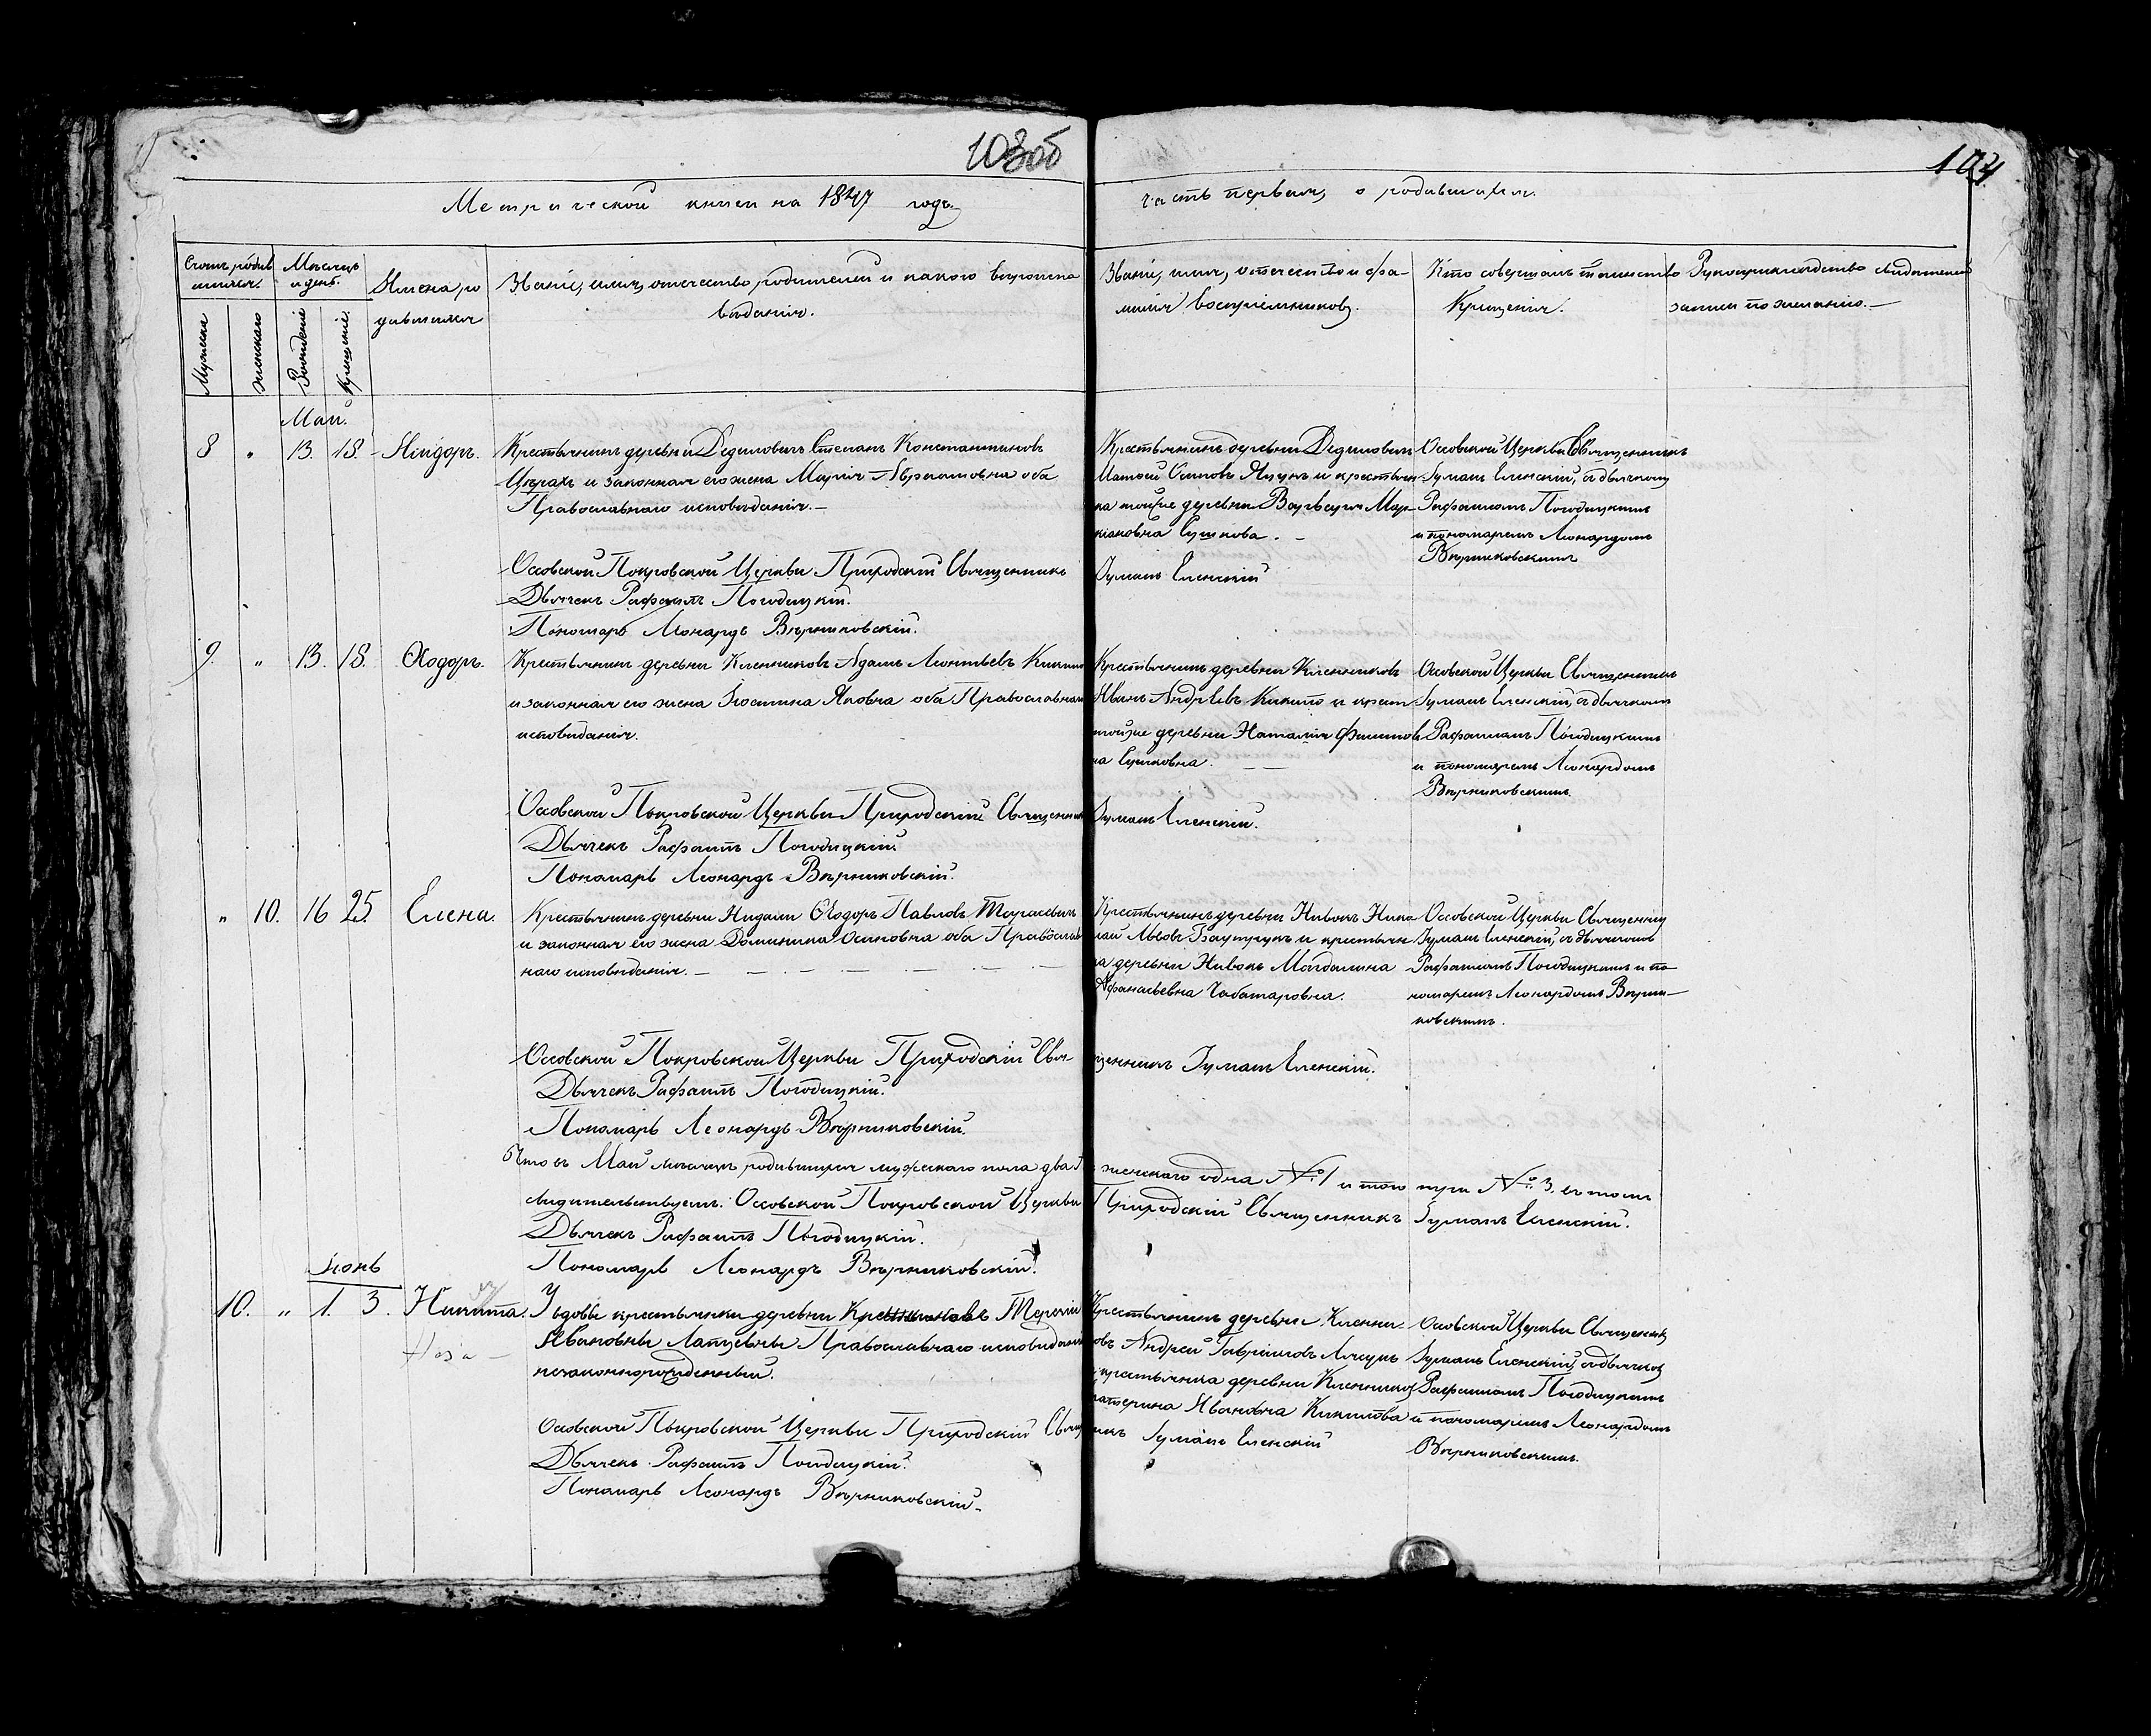 103об
104
Метрической книги на 1847 годъ
часть первая, о родившихся.
Счетъ родив
шихся.
Мѣсяцъ
и день.
Имена ро
дившихся
Званіе, имя, отчество родителей и какого вѣроиспо
вѣданія.
Званіе, имя, отечество и фа-
милія воспріемниковъ.
Кто совершалъ таинство
Крещенія.
Рукоприкладство свидѣтелей
записи по желанію.—
Мужска
женскаго
Рожденіе
Крещеніе.
Май.
8 " 13. 18. Исидоръ.
Крестьянинъ деревни Дедиловичъ Степанъ Константиновъ
и законная его жена Марія Абрамовна оба
Православнаго исповѣданія.—
Крестьянинъ деревни Дедиловичъ
Матѳей Осиповъ Яцукъ и крестьян
ка тойже деревни Варвара Мар-
кіановна Сушкова. -
Оссовской Церкви Священникъ
Іуліанъ Еленскій, съ дьячкомъ
Рафаиломъ Погодицкимъ
и пономаремъ Леонардомъ
Вѣрниковскимъ
Оссовской Покровской Церкви Приходскій Священникъ
Іуліанъ Еленскій
Дьячекъ Рафаилъ Погодицкій.
Пономарь Леонардъ Вѣрниковскій.
9. " 13. 18. Ѳеодоръ.
Крестьянинъ деревни Кленниковъ Адамъ Леонтьевъ
и законная его жена Іюстина Яковна оба Православнаго
исповѣданія.
Крестьянинъ деревни Кленниковъ
Иванъ Андреевъ и крест
тойже деревни Наталія Филипов
на Сушковна. — —
Оссовской Церкви Священникъ
Іуліанъ Еленскій, съ дьячкомъ
Рафаиломъ Погодицкимъ
и пономаремъ Леонардомъ
Вѣрниковскимъ.
Оссовской Покровской Церкви Приходскій Священникъ
Іуліанъ Еленскій.
Дьячекъ Рафаилъ Погодицкій.
Пономарь Леонардъ Вѣрниковскій.
" 10. 16 25. Елена.
Крестьянинъ деревни Ѳеодоръ Павловъ Тарасевичъ
и законная его жена Доминика Осиповна оба Православ
наго исповѣданія. —
Крестьянинъ деревни Нивокъ Нико
лай и крестьян
ка деревни Нивокъ Магдалина
Афанасьевна Чабатаровна.
Оссовской Церкви Священникъ
Іуліанъ Еленскій, съ дьячкомъ
Рафаиломъ Погодицкимъ и по-
номаремъ Леонардомъ Вѣрни—
ковскимъ.
Оссовской Покровской Церкви Приходскій Свя-
щенникъ Іуліанъ Еленскій.
Дьячекъ Рафаилъ Погодицкій.
Пономарь Леонардъ Вѣрниковскій.
Что въ Маи мѣсяцѣ родившихся мужескаго пола два
женскаго одна № 1 и того три № 3. въ томъ
свидѣтельствуемъ. Оссовской Покровской Церкви
Приходскій Священникъ Іуліанъ Еленскій.
Дьячекъ Рафаилъ Погодицкій.
Пономарь Леонардъ Вѣрниковскій.
Іюнь
10. " 1. 3. Никита.
У вдовы крестьянки деревни
Ивановны Лапцевны Православнаго исповѣданія
незаконнорожденный.
Крестьянинъ деревни Кленни-
овъ Андрей Гавріиловъ
крестьянка деревни Кленниковъ
Катерина Ивановна
Оссовской Церкви Священникъ
Іуліанъ Еленскій, съ дьячкомъ
Рафаиломъ Погодицкимъ
и пономаремъ Леонардомъ
Вѣрниковскимъ.
Оссовской Покровской Церкви Приходскій Священ
никъ Іуліанъ Еленскій
Дьячекъ Рафаилъ Погодицкій.
Пономарь Леонардъ Вѣрниковскій.